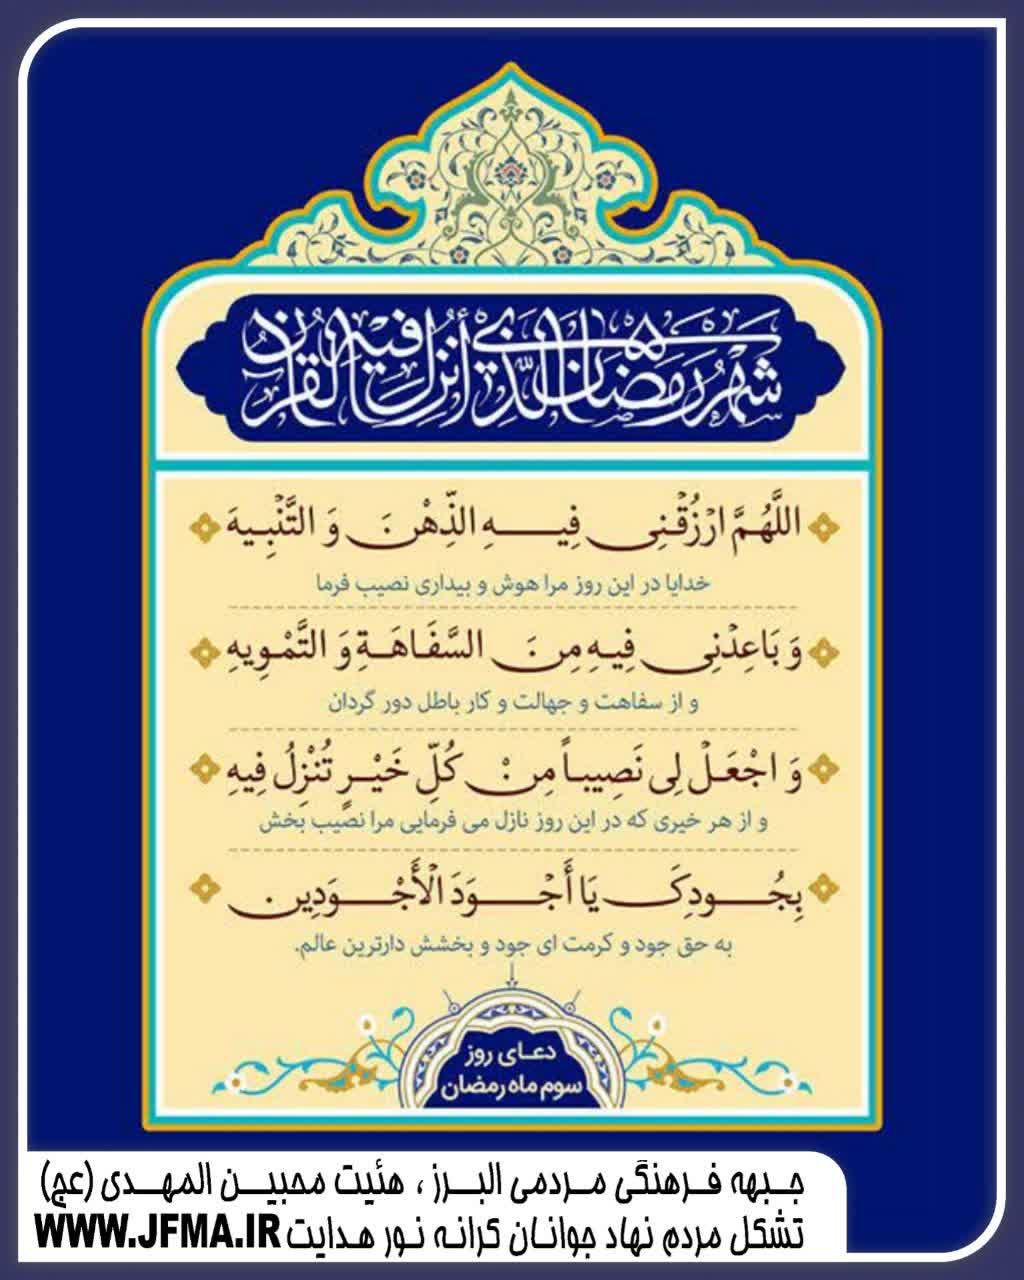 شهر رمضان الذی أنزل فیه القرآن
اللَّهُمَّ ارْزُقْنِی فِیهِ الذِّهْنَ وَ التَّنْبِیهَ
خدایا در این روز مرا هوش و بیداری نصیب فرما
وَ بَاعِدْنِی فِیهِ مِنَ السَّفَاهَةِ وَ التَّمْوِیهِ
و از سفاهت و جهالت و کار باطل دور گردان
وَ اجْعَلْ لِی نَصِیباً مِنْ کُلِّ خَیْرٍ تُنْزِلُ فِیهِ
و از هر خیری که در این روز نازل می فرمایی مرا نصیب بخش
بِجُودِکَ یَا أَجْوَدَ الْأَجْوَدِینَ
به حق جود و کرمت ای جود و بخشش دارترین عالم.
دعای روز
سوم ماه رمضان
جبهه فرهنگی مردمی البرز ، هئیت محبین المهدی (عج)
تشکل مردم نهاد جوانان کرانه نور هدایت WWW.JFMA.IR